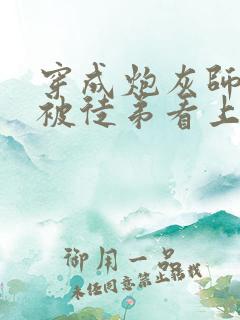 穿成炮灰師
被徒弟看上
御用一品
未经同意禁止转载